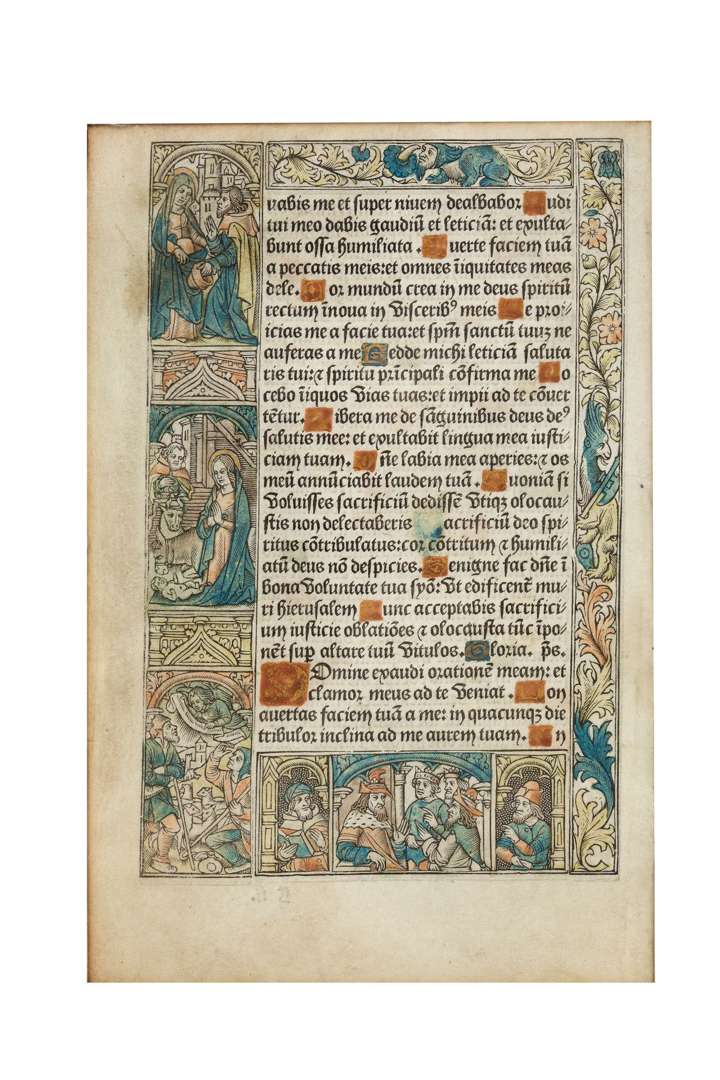 vabis me et super niuem dealbabor Audi
tui meo dabis gaudiū et leticiā: et exulta⸗
bunt ossa humiliata . Auerte faciem tuā
a peccatis meis: et omnes īiquitates meas
dele. Cor mundū crea in me deus spiritū
rectum īnoua in Visceribꝰ meis Ne proii⸗
icias me a facie tua: et spm̄ sanctū tuuꝫ ne
auferas a me Redde michi leticiā saluta
ris tui: ⁊ spiritu prīcipali cōfirma me Do
cebo īiquos Vias tuas: et impii ad te cōuer
tētur. Libera me de sāguinibus deus deꝰ
salutis mee: et exultabit lingua mea iusti⸗
ciam tuam. Dn̄e labia mea aperies: ⁊ os
meū annūciabit laudem tuā Quoniā si
Voluisses sacrificiū dedissē Vtiqꝫ olocau⸗
stis non delectaberis acrificiū deo spi⸗
ritus cōtribulatus: cor cōtritum ⁊ humili⸗
atū deus nō despicies. Benigne fac dn̄e ī
bona Voluntate tua syō: Vt edificent̄ mu⸗
ri hierusalem Tunc acceptabis sacrifici⸗
um iusticie oblatiōes ⁊ olocausta tūc īpo⸗
nēt sup̄ altare tuū Vitulos. Gloria. p̄s.
Domine exaudi orationē meam: et
clamor meus ad te Veniat . Non
auertas faciem tuā a me: in quacunqꝫ die
tribulor inclina ad me aurem tuam. In